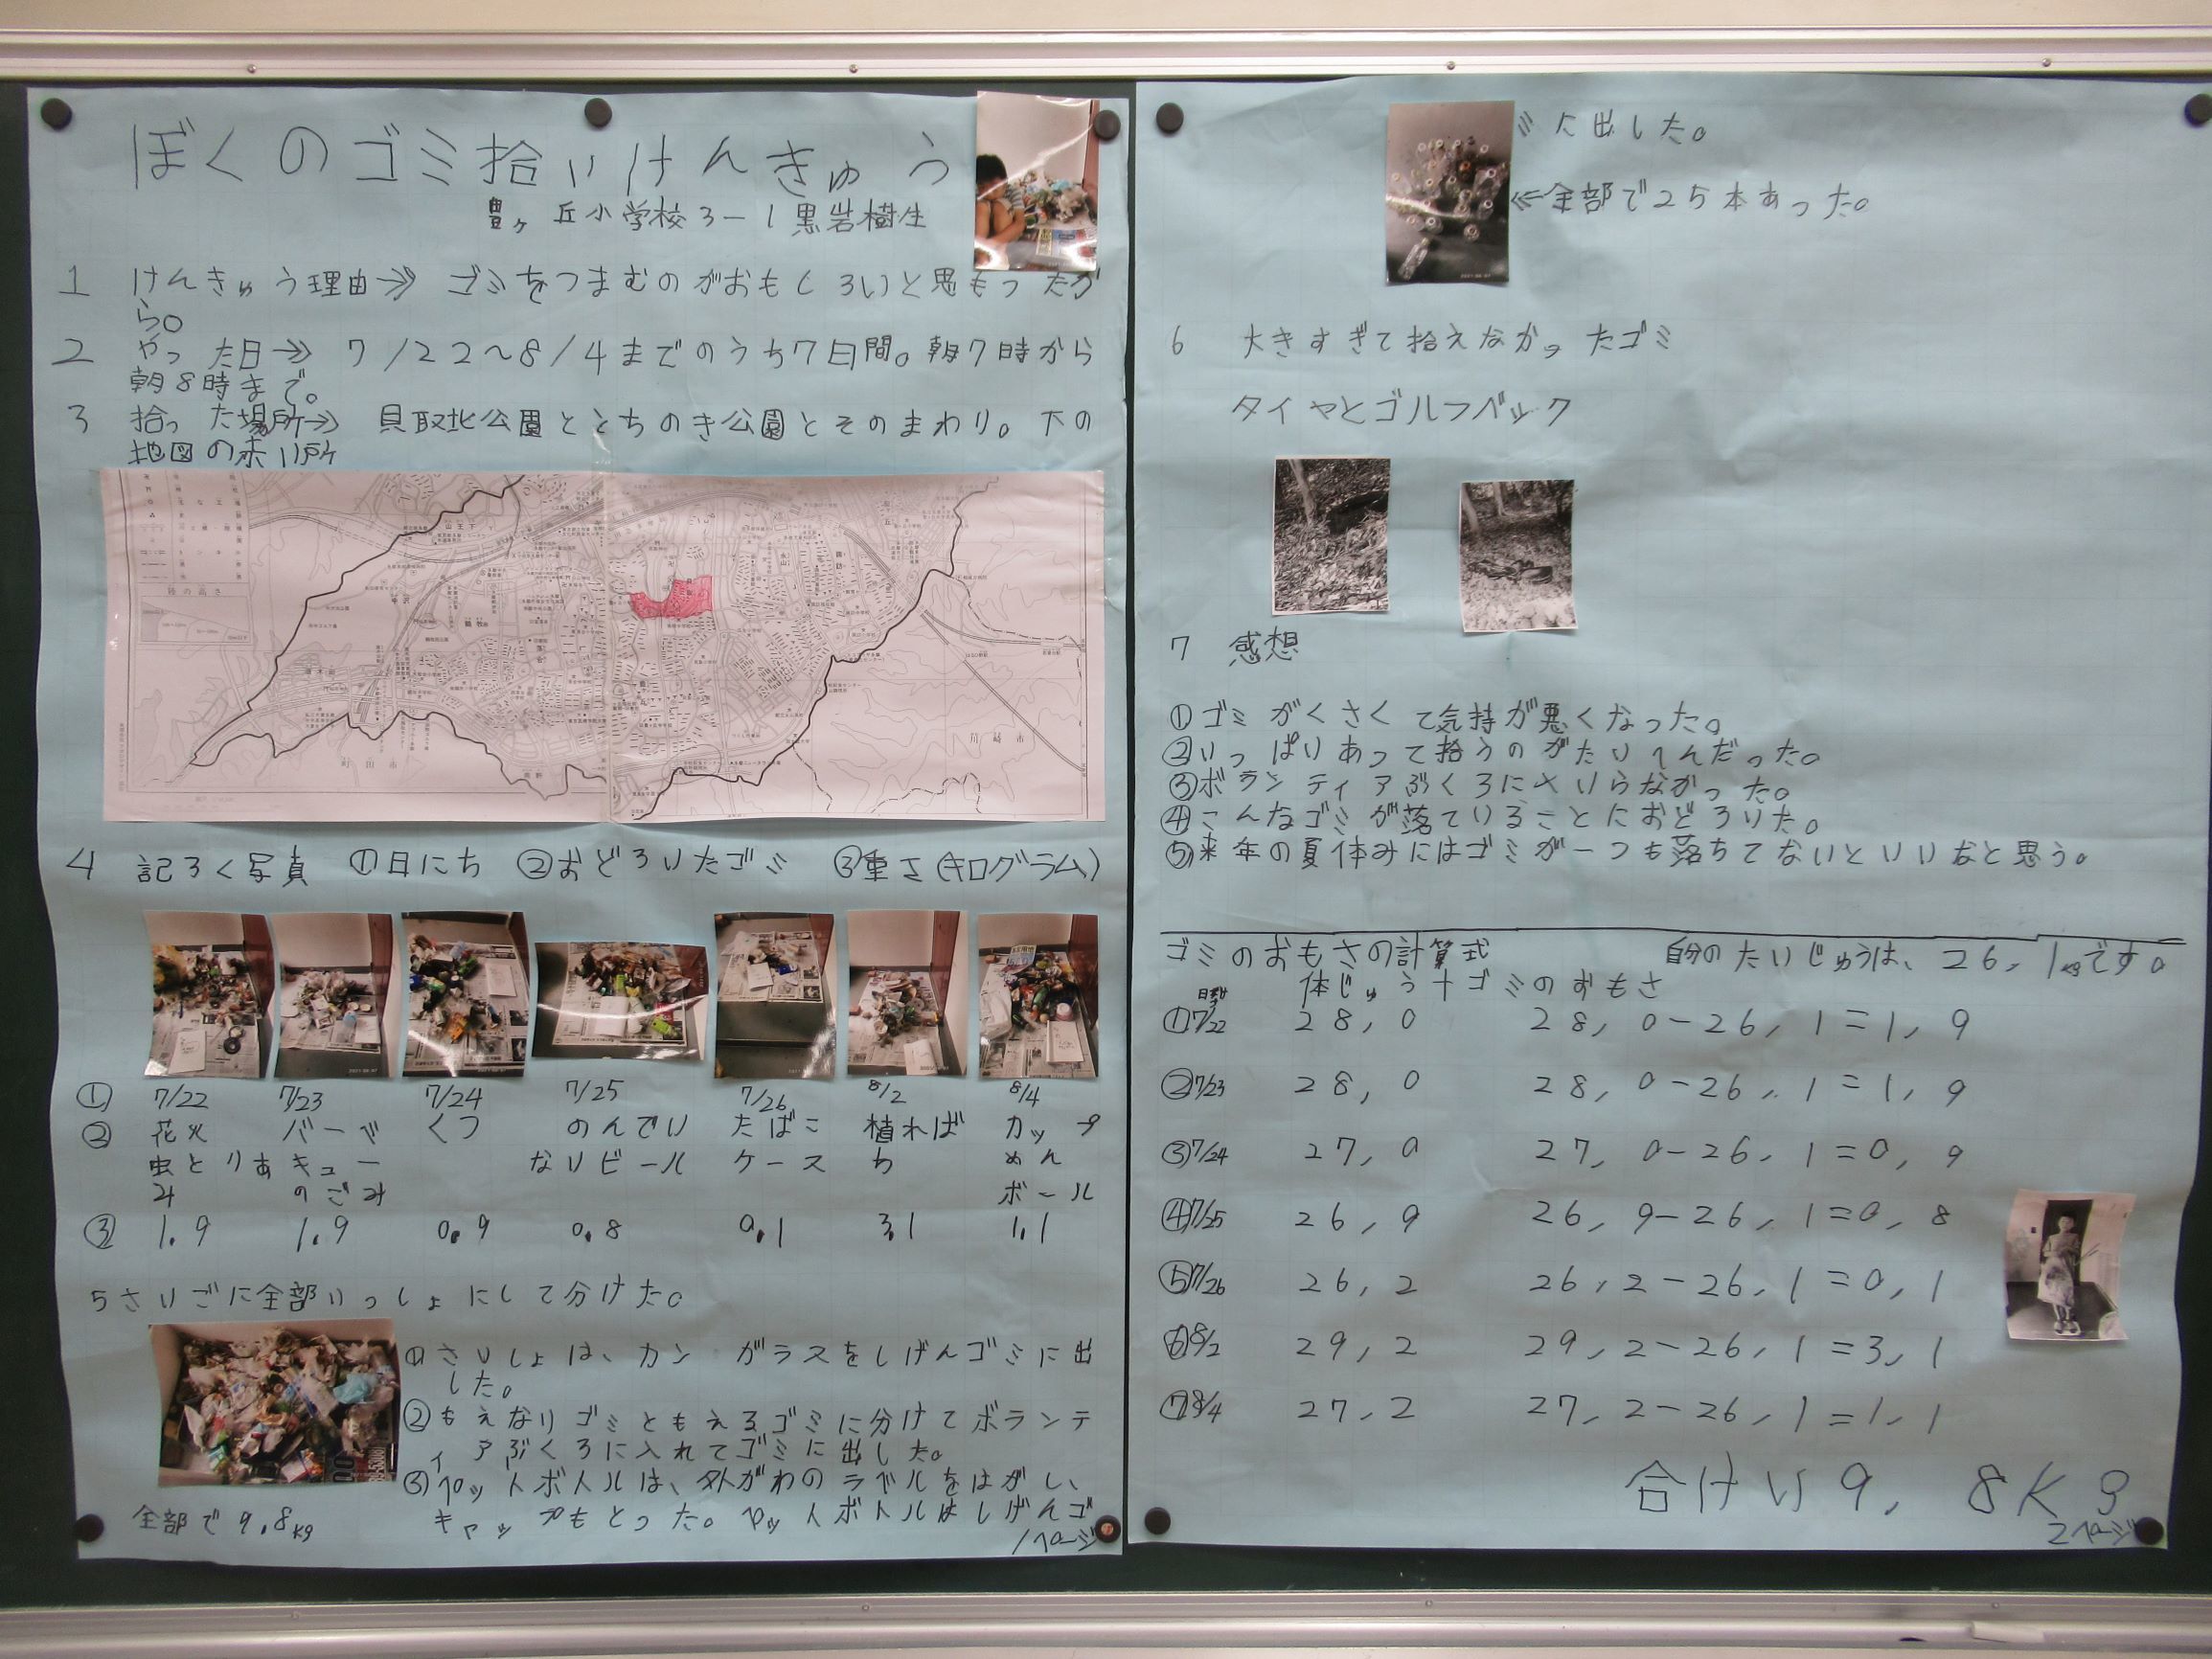 ぼくのゴミ拾いけんきゅう
豊ヶ丘小学校3-1黒岩樹生
1 けんきゅう理由→ ゴミをつまむのがおもしろいと思もったか
ら。
2 やった日→ 7/22~8/4までのうち7日間。朝7時から
朝8時まで。
3 拾った場所→ 貝取北公園ととちのき公園とそのまわり。下の
地図の赤い所
陸の高さ
町田市
川崎市
4 記ろく写真 ①日にち ②おどろいたゴミ ③重さ(キログラム)
① 7/22 7/23 7/24 7/25 7/26 8/2 8/4
② 花火 バーベ くつ のんでい たばこ 植木ば カップ
虫とりあ キュー ないビール ケース ち めん
み のごみ ボール
③ 1.9 1.9 0.9 0.8 0.1 3.1 1.1
5さいごに全部いっしょにして分けた。
①さいしょは、カン ガラスをしげんゴミに出
した。
②もえないゴミともえるゴミに分けてボランテ
ィアぶくろに入れてゴミに出した。
③ペットボトルは、外がわのラベルをはがし、
キャップもとった。ペットボトルはしげんゴ
全部で9.8kg
1ページ
ミに出した。
⇐全部で25本あった。
6 大きすぎて拾えなかったゴミ
タイヤとゴルフバック
7 感想
①ゴミがくさくて気持が悪くなった。
②いっぱいあって拾うのがたいへんだった。
③ボランティアぶくろに入いらなかった。
④こんなゴミが落ていることにおどろいた。
⑤来年の夏休みにはゴミが一つも落ちてないといいなと思う。
ゴミのおもさの計算式 自分のたいじゅうは、26,1kgです。
体じゅう+ゴミのおもさ
①7/22 28,0 28,0-26,1=1,9
②7/23 28,0 28,0-26,1=1,9
③7/24 27,0 27,0-26,1=0,9
④7/25 26,9 26,9-26,1=0,8
⑤7/26 26,2 26,2-26,1=0,1
⑥8/2 29,2 29,2-26,1=3,1
⑦8/4 27,2 27,2-26,1=1,1
合けい9,8Kg
2ページ